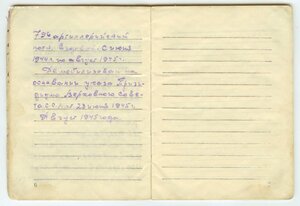 артиллерийский
полк, взвода. С июня
194 г. по август 1945 г.
Демобилизован на
основании указа Прези-
диума Верховного Сове-
та СССР от 23 июня 1945 г.
Август 1945 года.
6